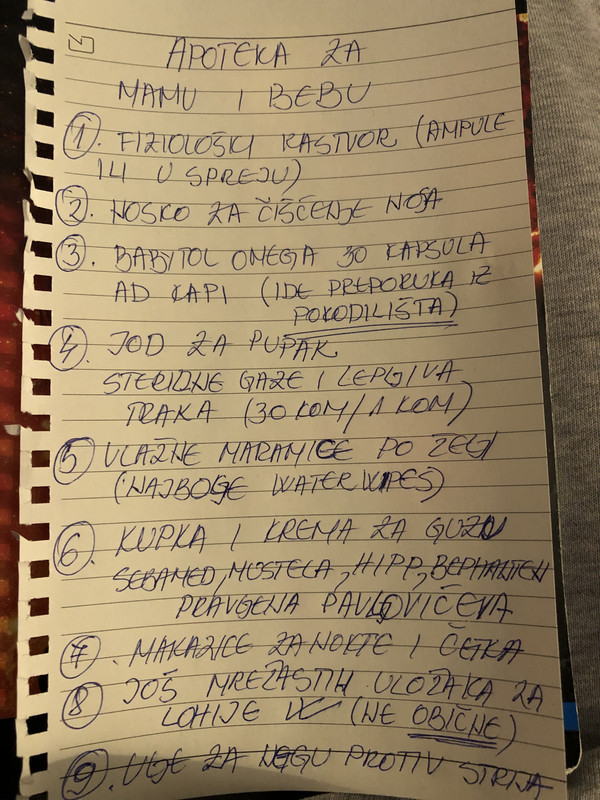 APOTEKA ZA
MAMU I BEBU
1. FIZIOLOŠKI RASTVOR (AMPULE
I LI U SPREJU)
2. NOSKO ZA ČIŠĆENJE NOSA
3. BABYTOL OMEGA 30 KAPSULA
AD KAPI (IDE PREPORUKA IZ
PORODILIŠTA)
4. JOD ZA PUPAK
STERILNE GAZE I LEPLJIVA
TRAKA (30 KOM/1 KOM)
5 VLAŽNE MARAMICE PO ŽELJI
(NAJBOLJE WATER WIPES)
6. KUPKA I KREMA ZA GUZU
SEBAMED, MUSTELA, HIPP, BEPHANTEN
PRAVLJENA PAVLOVIĆEVA
7. MAKAZICE ZA NOKTE I ČETKA
8 JOŠ MREŽASTIH ULOŽAKA ZA
LOHIJE (NE OBIČNE)
9. ULJE ZA NEGU PROTIV STRIJA